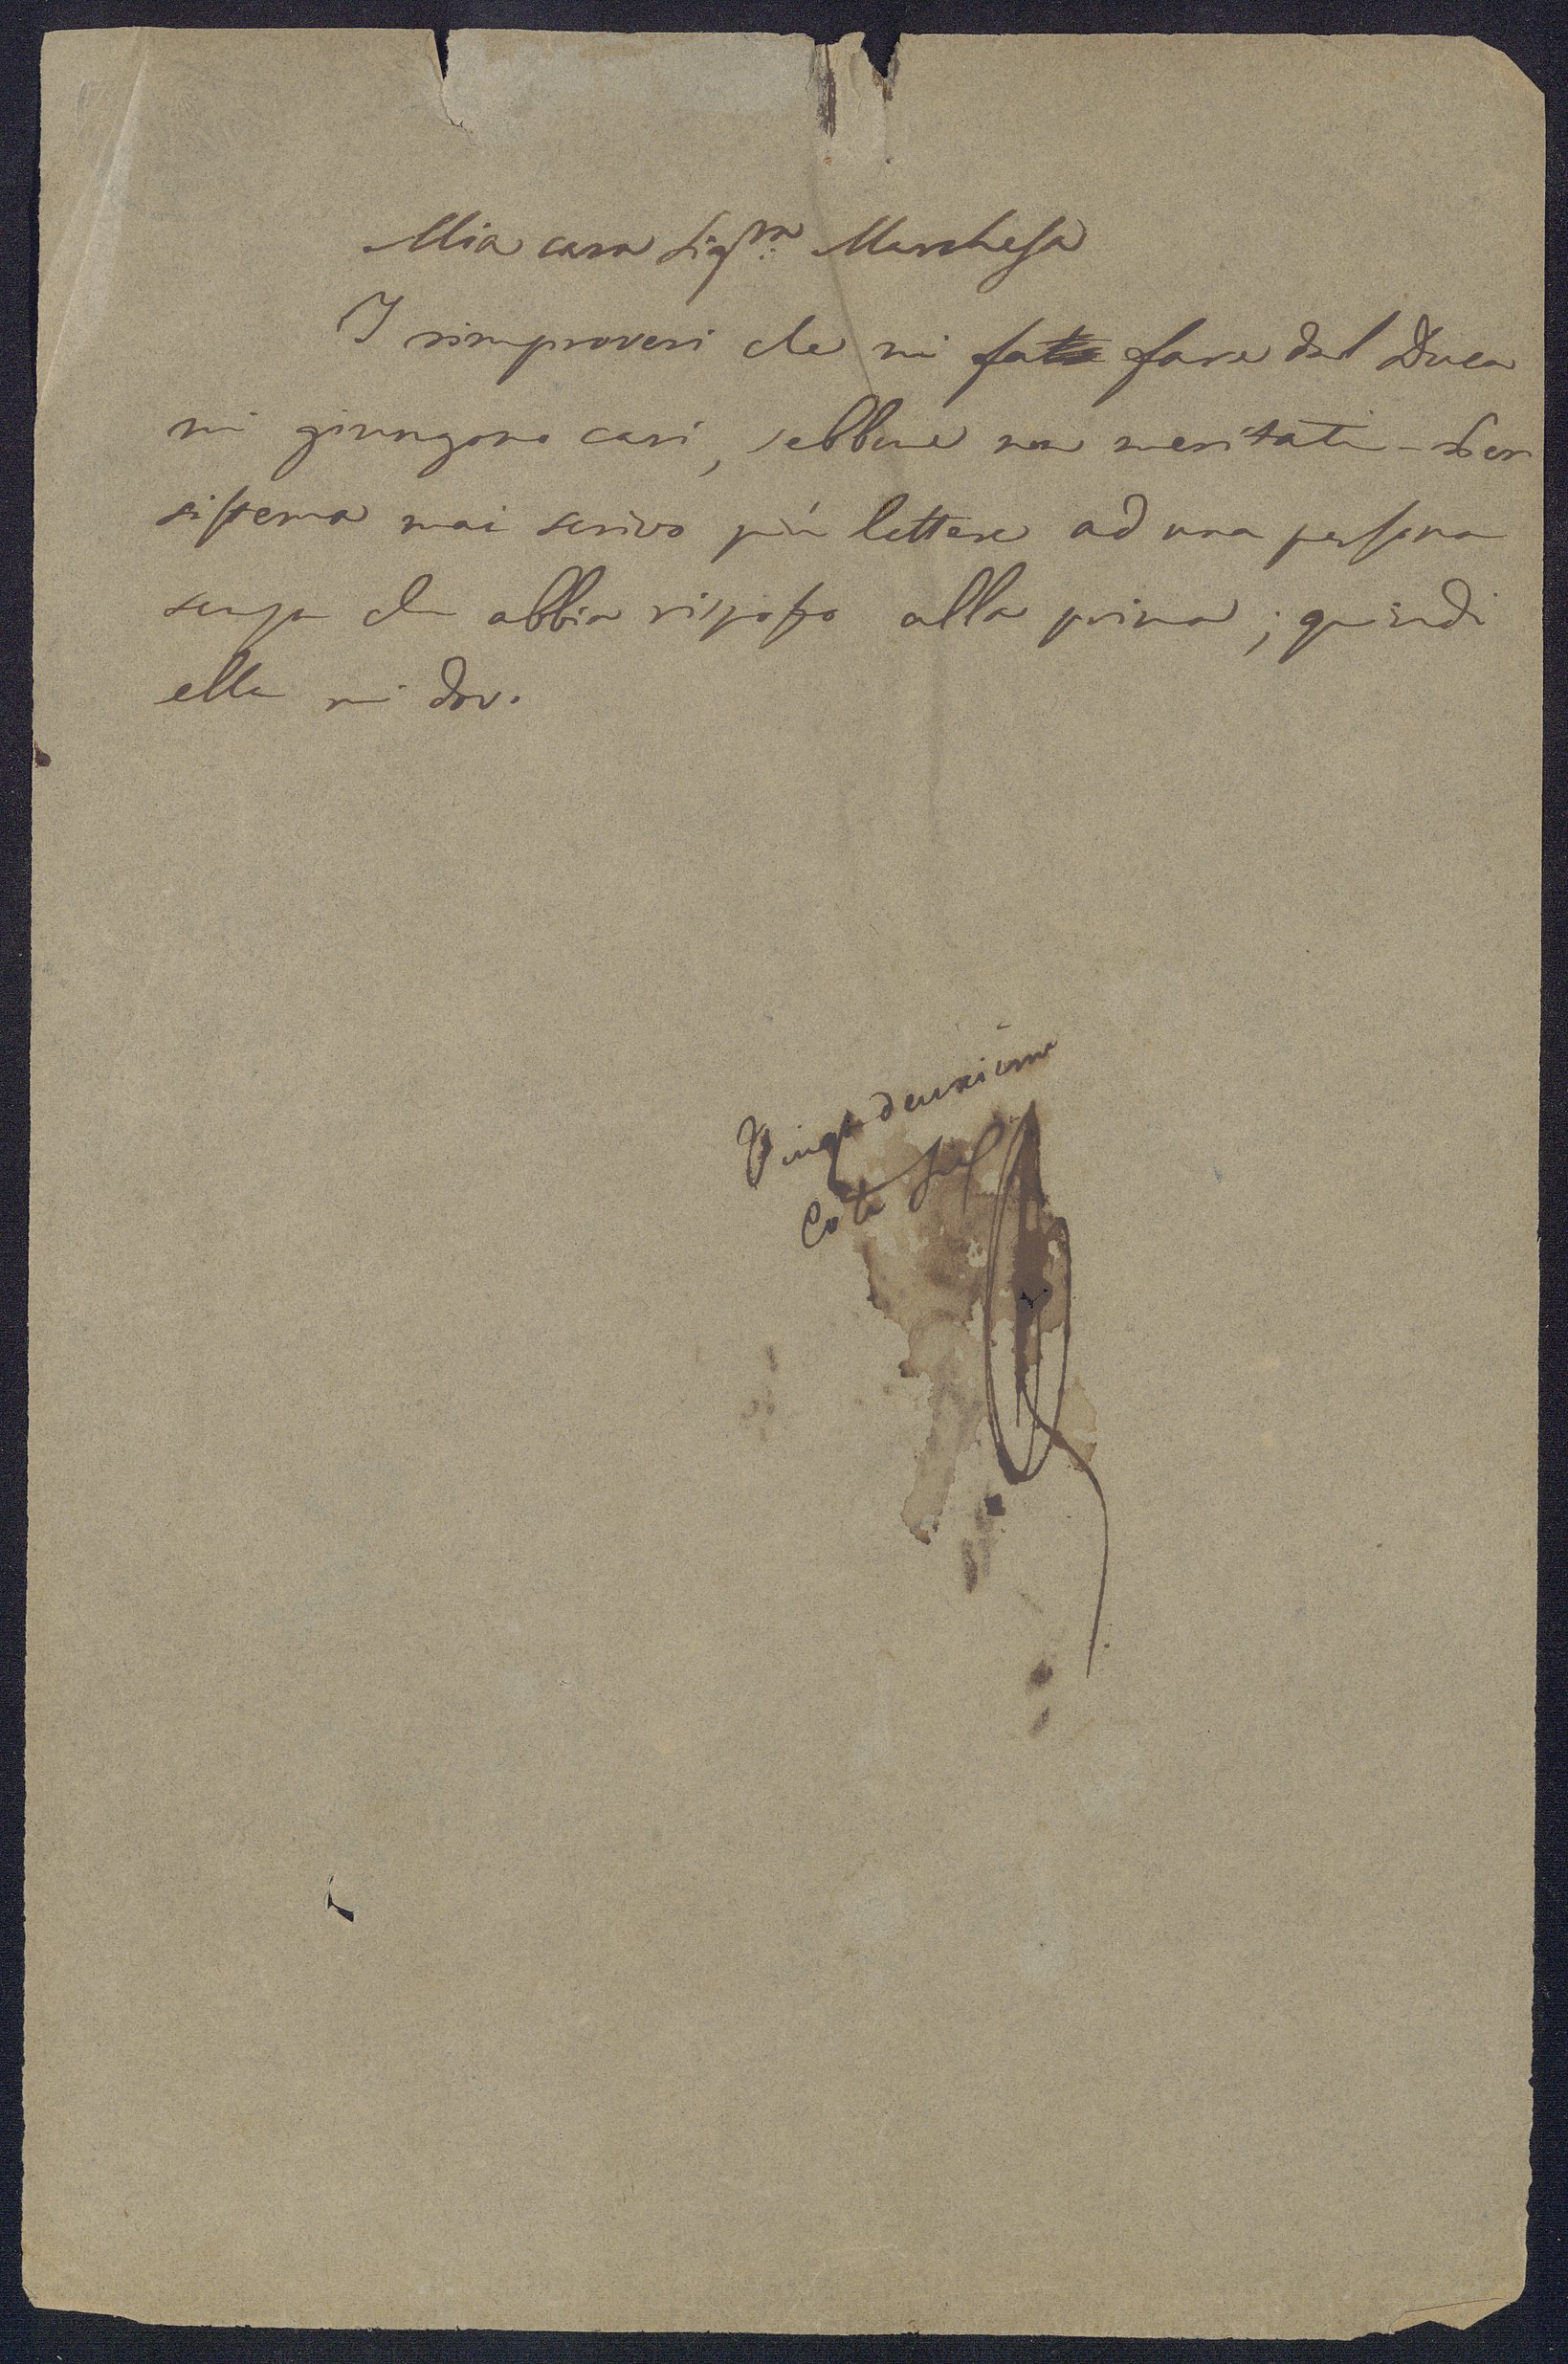 Mia cara Sigra Marchesa
I rimproveri che mi fate fare dal Duca
mi giungono cari, sebbene non meritati - Per
sistema mai scrivo più lettere ad una persona
senza che abbia risposto alla prima; quindi
ella mi dov.
Vingt deuxième
Cote